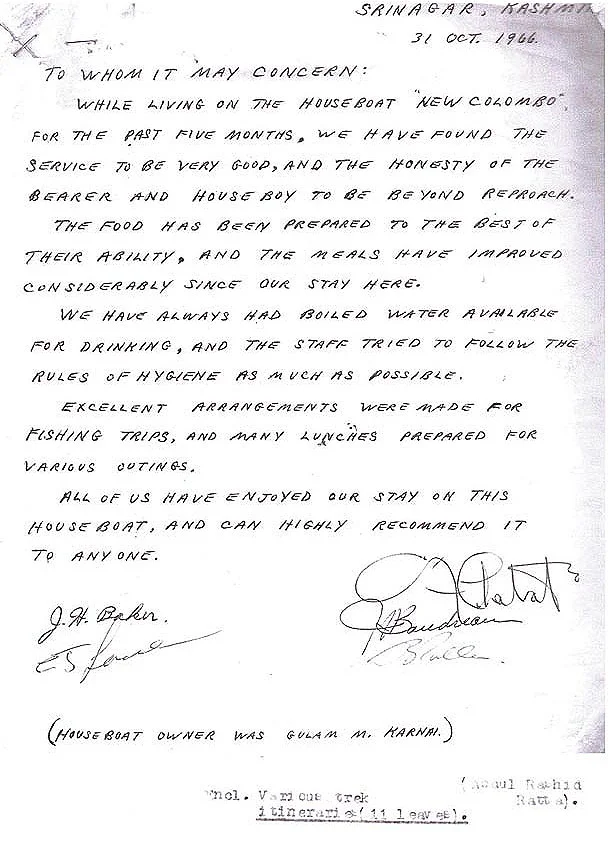 SRINAGAR, KASHMIR
31 OCT. 1966.
TO WHOM IT MAY CONCERN:
WHILE LIVING ON THE HOUSEBOAT "NEW COLOMBO",
FOR THE PAST FIVE MONTHS, WE HAVE FOUND THE
SERVICE TO BE VERY GOOD, AND THE HONESTY OF THE
BEARER AND HOUSE BOY TO BE BEYOND REPROACH.
THE FOOD HAS BEEN PREPARED TO THE BEST OF
THEIR ABILITY, AND THE MEALS HAVE IMPROVED
CONSIDERABLY SINCE OUR STAY HERE.
WE HAVE ALWAYS HAD BOILED WATER AVAILABLE
FOR DRINKING, AND THE STAFF TRIED TO FOLLOW THE
RULES OF HYGIENE AS MUCH AS POSSIBLE.
EXCELLENT ARRANGEMENTS WERE MADE FOR
FISHING TRIPS, AND MANY LUNCHES PREPARED FOR
VARIOUS OUTINGS.
ALL OF US HAVE ENJOYED OUR STAY ON THIS
HOUSE BOAT, AND CAN HIGHLY RECOMMEND IT
TO ANYONE.
J. H. Baker.
Boudreau
(HOUSEBOAT OWNER WAS GULAM M. KARNAI.)
(Abdul Rashid
Encl. Various trek
Ratta).
itineraries(11 leaves).